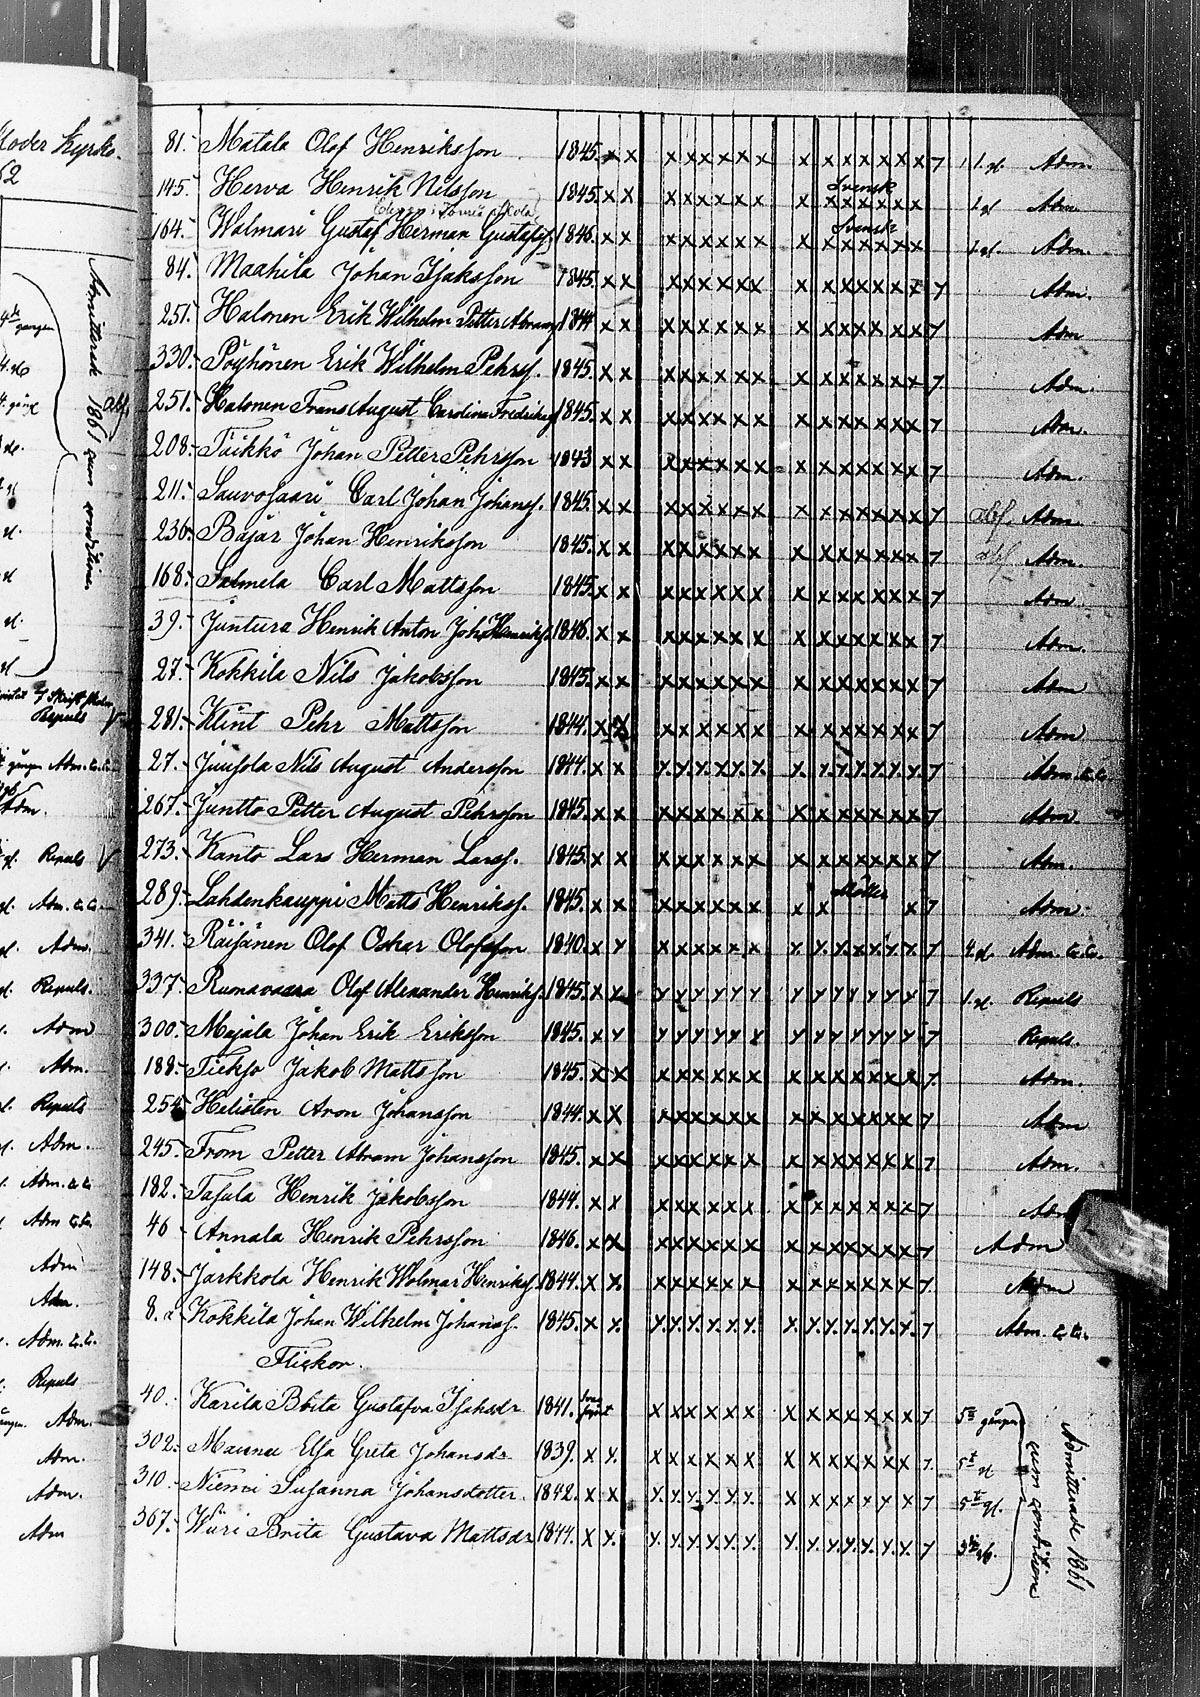 81. Matala Olof Henriksson 1845. x x x x x x x x x x x x x x x 7 1. gl Adm.
145. Herva Henrik Nilsson 1845. x x x x x x x x x Svensk x x x x x x gl Adm.
Elever i Torneå skola
164. Walmari Gustaf Herman Gustafss. 1846. x x x x x x x x x Svensk x x x x x x gl. Adm.
84. Maahila Johan Isaksson 1845. x x x x x x x x x x x x x x x 7 Adm.
251. Halonen Erik Wilhelm Petter Abramss 1844 x x x x x x x x x x x x x x x 7 Adm
330. Pöyhönen Erik Wilhelm Pehrss. 1845. x x x x x x x x x x x x x x x 7 Adm.
251. Halonen Frans August Carolina Fredrikas 1845. x x x x x x x x x x x x x x x 7 Adm.
208. Taikko Johan Petter Pehrsson 1843 x x x x x x x x x x x x x x x 7 Adm.
211. Sauvosaari Carl Johan Johanss. 1845. x x x x x x x x x x x x x x x 7 abs. Adm.
236. Bajar Johan Henriksson 1845. x x x x x x x x x x x x x x x 7 abs Adm.
168. Salmela Carl Mattsson 1845. x x x x x x x x x x x x x x x 7 Adm
39. Juntura Henrik Anton Joh. Henrikss. 1846. x x x x x x x x x x x x x x x 7 Adm.
27. Kokkila Nils Jakobsson 1845. x x x x x x x x x x x x x x x 7 Adm
281. Klint Pehr Mattsson 1844. x x x x x x x x x x x x x x x 7 Adm
27. Juusola Nils August Andersson 1844. x x x x x x x x x x x x x x x 7 Adm. c.c.
267. Juntto Petter August Pehrsson 1845. x x x x x x x x x x x x x x x 7 Adm.
273. Kanto Lars Herman Larss. 1845. x x x x x x x x x x x x x x x 7 Adm.
289. Lahdenkauppi Matts Henrikss. 1845. x x x x x x x x x x Möller x 7 Adm.
341. Räisänen Olof Oskar Olofsson 1840. x x x x x x x x x x x x x x x 7 4. gl. Adm. c.c.
337. Rumavaara Olof Alexander Henrikss. 1845. x x x x x x x x x x x x x x x 7 1. gl Repuls
300. Majala Johan Erik Eriksson 1845. x x x x x x x x x x x x x x x 7 Repuls.
188. Tiekso Jakob Mattsson 1845. x x x x x x x x x x x x x x x 7 Adm.
254 Helisten Aron Johansson 1844. x x x x x x x x x x x x x x x 7 Adm
245. From Petter Abram Johansson 1845. x x x x x x x x x x x x x x x 7 Adm.
182. Tasula Henrik Jakobsson 1844. x x x x x x x x x x x x x x x 7 Adm
46 Annala Henrik Pehrsson 1846. x x x x x x x x x x x x x x x 7 Adm
148. Jarkkola Henrik Wolmar Henrikss. 1844. x x x x x x x x x x x x x x x 7 Adm
8. a Kokkila Johan Wilhelm Johanss. 1845. x x x x x x x x x x x x x x x 7 Adm. c.c.
Flickor.
40. Karila Brita Gustafva Isaksdr 1841. x x x x x x x x x x x x x 7 5te gången
302. Maunu Elsa Greta Johansdr 1839. x x x x x x x x x x x x x x x 7 5te gl
310. Niemi Susanna Johansdotter. 1842. x x x x x x x x x x x x x x x 7 5te gl.
367. Würi Brita Gustava Mattsdr 1844. x x x x x x x x x x x x x x x 7 3dje
Admitterade 1861
cum conditione
Admitterade 1861 cum conditione
Repuls
Adm.
Repuls
Adm. c.c.
Adm.
Repuls.
Adm
Adm.
Repuls
Adm.
Adm. c.c.
Adm c.c.
Adm
Adm.
Adm. c.c.
Repuls
Adm.
Adm.
Adm.
Adm